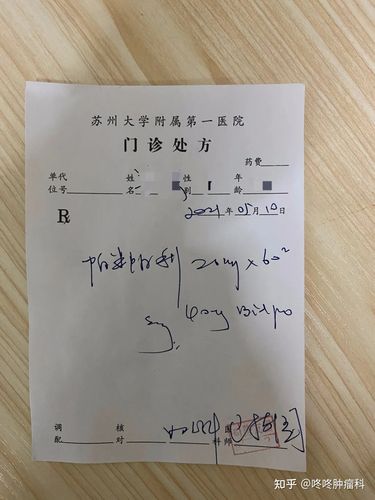 苏州大学附属第一医院
门诊处方
药费
单位代号 姓名 性别 年龄
R
2021年05月10日
帕米帕利 20mg × 60
Sig. 40mg Bid po
调配 核对 医师
知乎 @咚咚肿瘤科